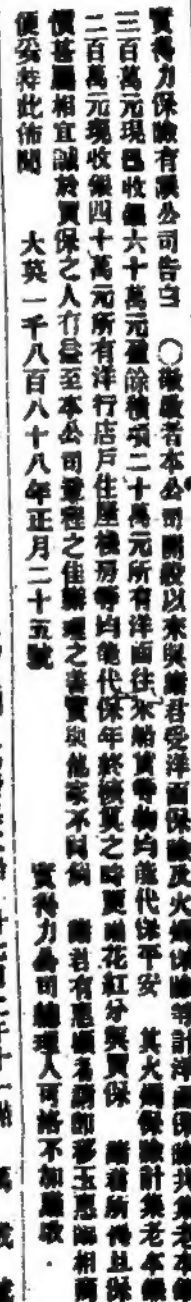 實得力保險有限公司告白　○敬啟者本公司開設以來與諸君受洋面保險及火燭保險等計洋面保險共集老本銀
三百萬元現已收銀六十萬元盈餘積項二十萬元所有洋面往來船貨等物均能代保平安　其火燭保險計集老本銀
二百萬元現收銀四十萬元所有洋行店戶住屋棧房等均能代保年終核算之時更兩花紅分與買保　諸君所得且保
價甚屬相宜誠於買保之人有益至本公司章程之佳辦理之善實與他家不同倘　諸君有惠顧者請即移玉惠臨相商
便妥特此佈聞　大英一千八百八十八年正月二十五號　實得力公司總理人可洛不加謹啟